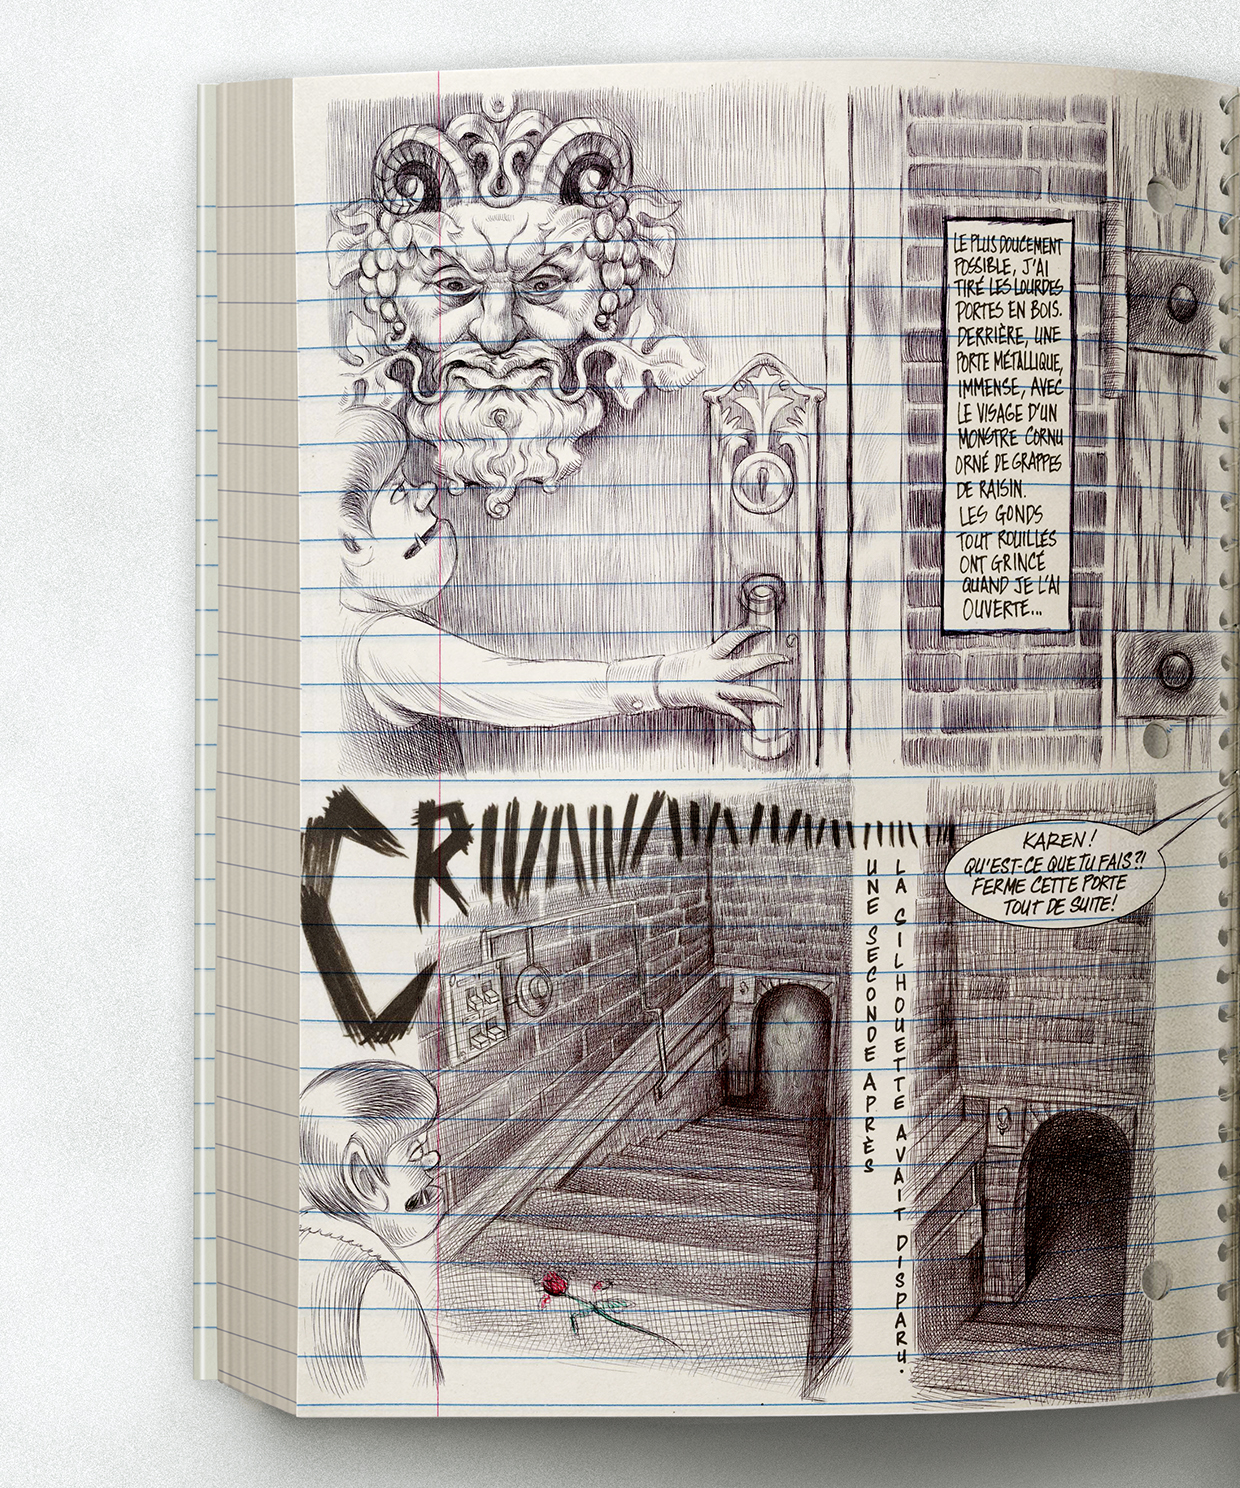 LE PLUS DOUCEMENT
POSSIBLE, J'AI
TIRÉ LES LOURDES
PORTES EN BOIS.
DERRIÈRE, UNE
PORTE MÉTALLIQUE,
IMMENSE, AVEC
LE VISAGE D'UN
MONSTRE CORNU
ORNÉ DE GRAPPES
DE RAISIN.
LES GONDS
TOUT ROUILLÉS
ONT GRINCÉ
QUAND JE L'AI
OUVERTE...
KAREN!
QU'EST-CE QUE TU FAIS?!
FERME CETTE PORTE
TOUT DE SUITE!
UNE SECONDE APRÈS
LA SILHOUETTE AVAIT DISPARU.